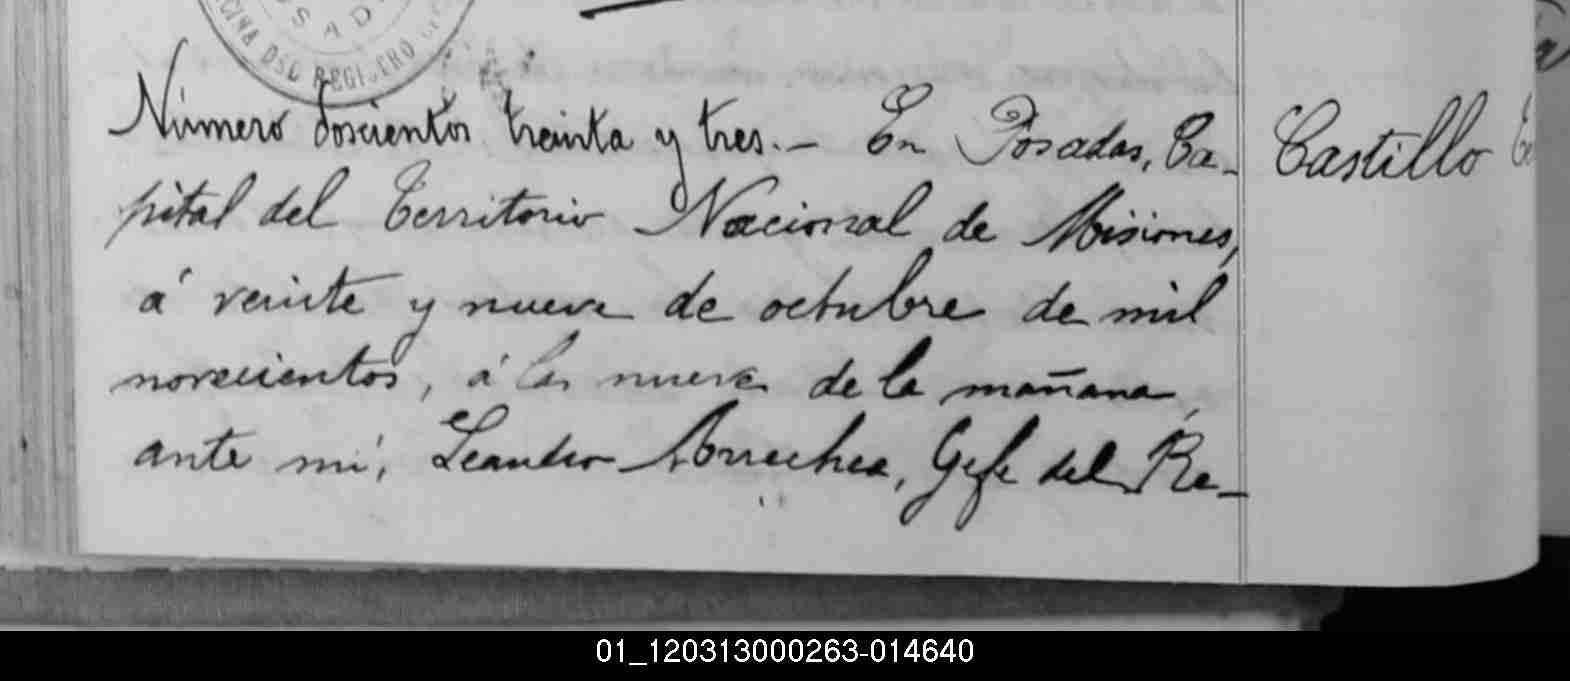 OSAD
CINA DEL REGISTRO
Número doscientos treinta y tres.- En Posadas, Ca-
pital del Territorio Nacional de Misiones,
á veinte y nueve de octubre de mil
novecientos, á las nueve de la mañana,
ante mí, Leandro Arrechea, Gefe del Re-
Castillo
01_120313000263-014640